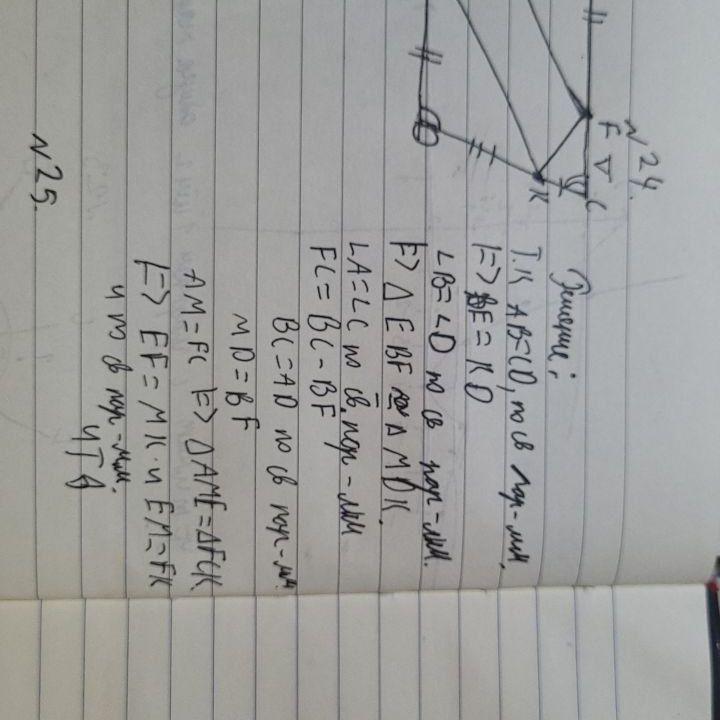 №24.
F
C
K
D
Решение:
Т.К AB=CD, по св пар-мм.
|=> BE=KD
∠B=∠D по св пар-мм.
|=> Δ EBF = Δ MDK.
∠A=∠C по св. пар-мм
FC=BC-BF
BC=AD по св пар-мм.
MD=BF
AM=FC |=> ΔAME=ΔFCK.
|=> EF=MK. и EM=FK
ч по св пар-мм.
ЧТД
№25.